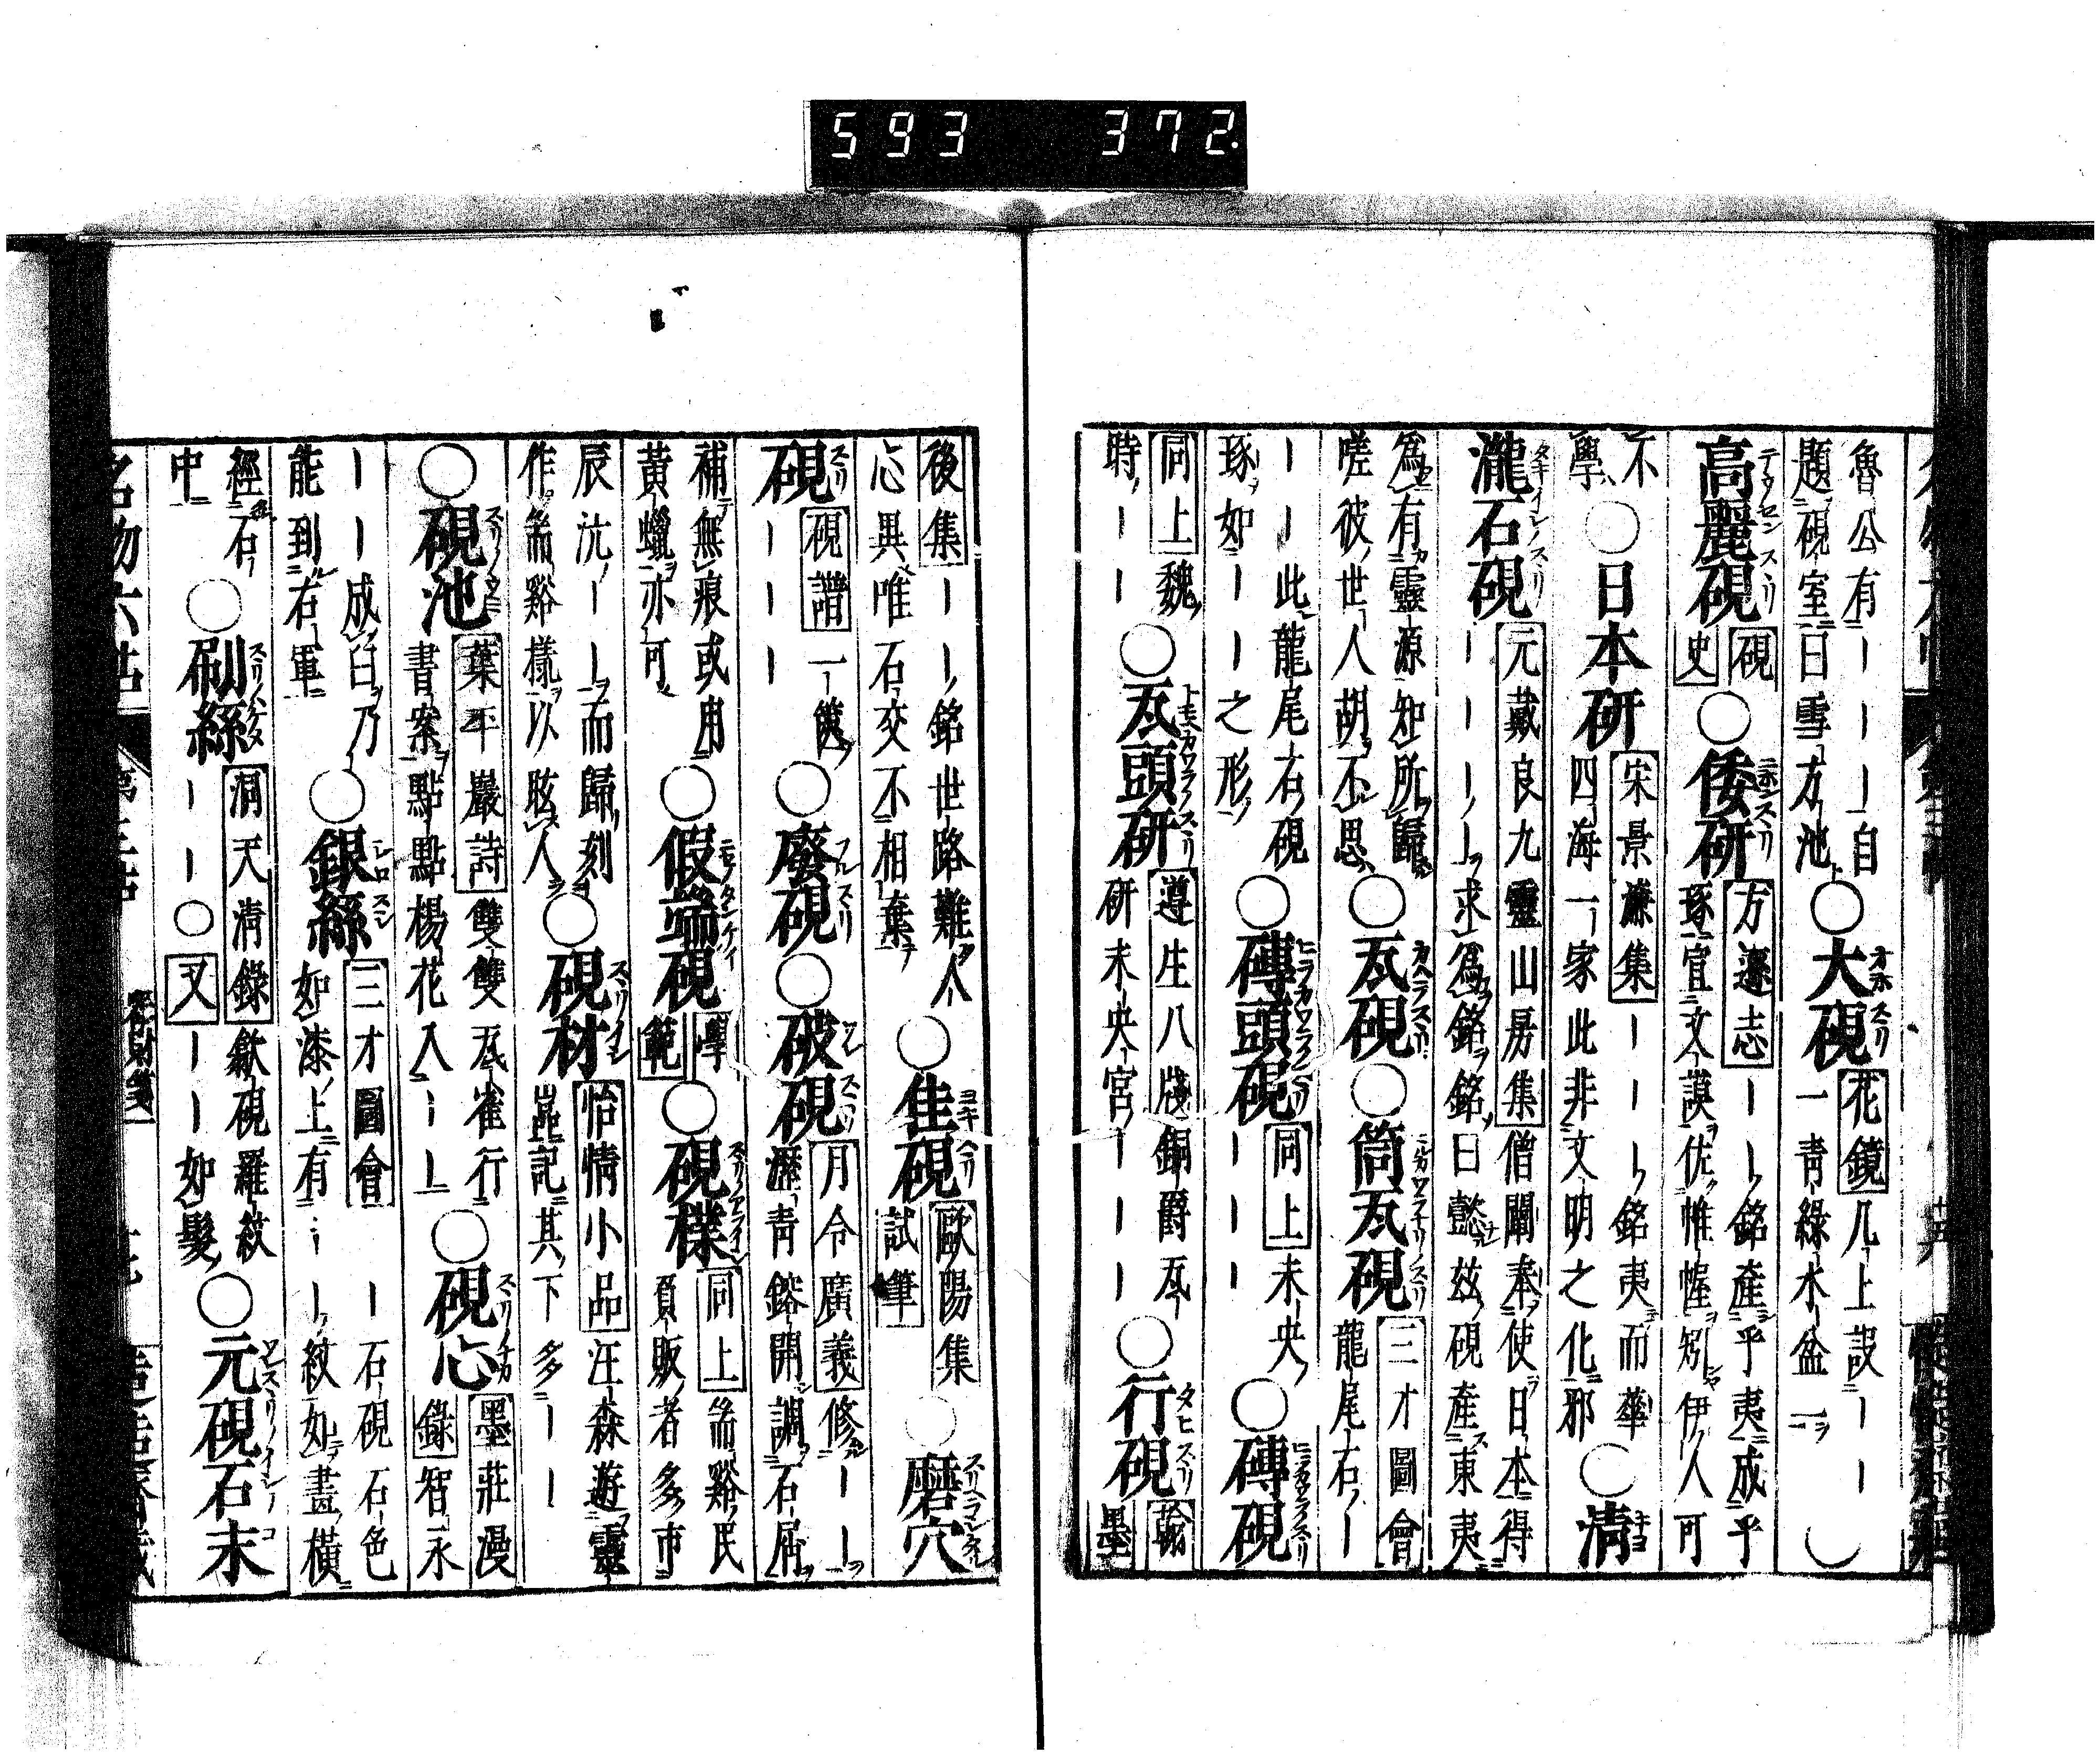 593 372
魯公有｜｜｜｜自
題硯室曰雪方池
○大硯
花鏡几上設｜｜
一青綠水盆一
○
高麗硯
硯史
○倭研
方遜志｜｜｜銘産乎夷成乎
琢宣文謨佐帷幄矧伊人可
不
學
○日本研
宋景濂集｜｜｜銘夷而華
四海一家此非文明之化邪
○清
瀧石硯
元戴良九靈山房集僧聞奉使日本得
｜｜｜｜求爲銘銘曰懿玆硯産東夷
爲有靈源知所歸
嗟彼世人胡不思
○瓦硯
○筒瓦硯
三才圖會
龍尾石｜
｜｜此龍尾石硯
琢如｜｜之形
○磚頭硯
同上未央
｜｜｜
○磚硯
同上魏
時｜｜
○瓦頭研
遵生八牋銅爵瓦
研未央宮｜｜｜｜
○行硯
翰
墨
後集｜｜｜銘世路難人
心異唯石交不相棄
○佳硯
歐陽集
試筆
○磨穴
硯
硯譜一篋
｜｜｜
○廢硯
○破硯
月令廣義修｜｜
瀝青鎔開調石屑
補無痕或用
黃蠟亦可
○假端硯
學
範
○硯樸
同上端谿民
負販者多市
辰沅｜｜而歸刻
作端谿樣以眩人
○硯材
怡情小品汪森遊靈
嵓記其下多｜｜
○硯池
葉平巖詩雙雙瓦雀行
書案點點楊花入｜｜
○硯心
墨莊漫
錄智永
｜｜成臼乃
能到右軍
○銀絲
三才圖會｜石硯石色
如漆上有｜｜紋如畫橫
經石
中
○刷絲
洞天清錄歙硯羅紋
｜｜○又｜｜如髮
○元硯石末
名物六帖